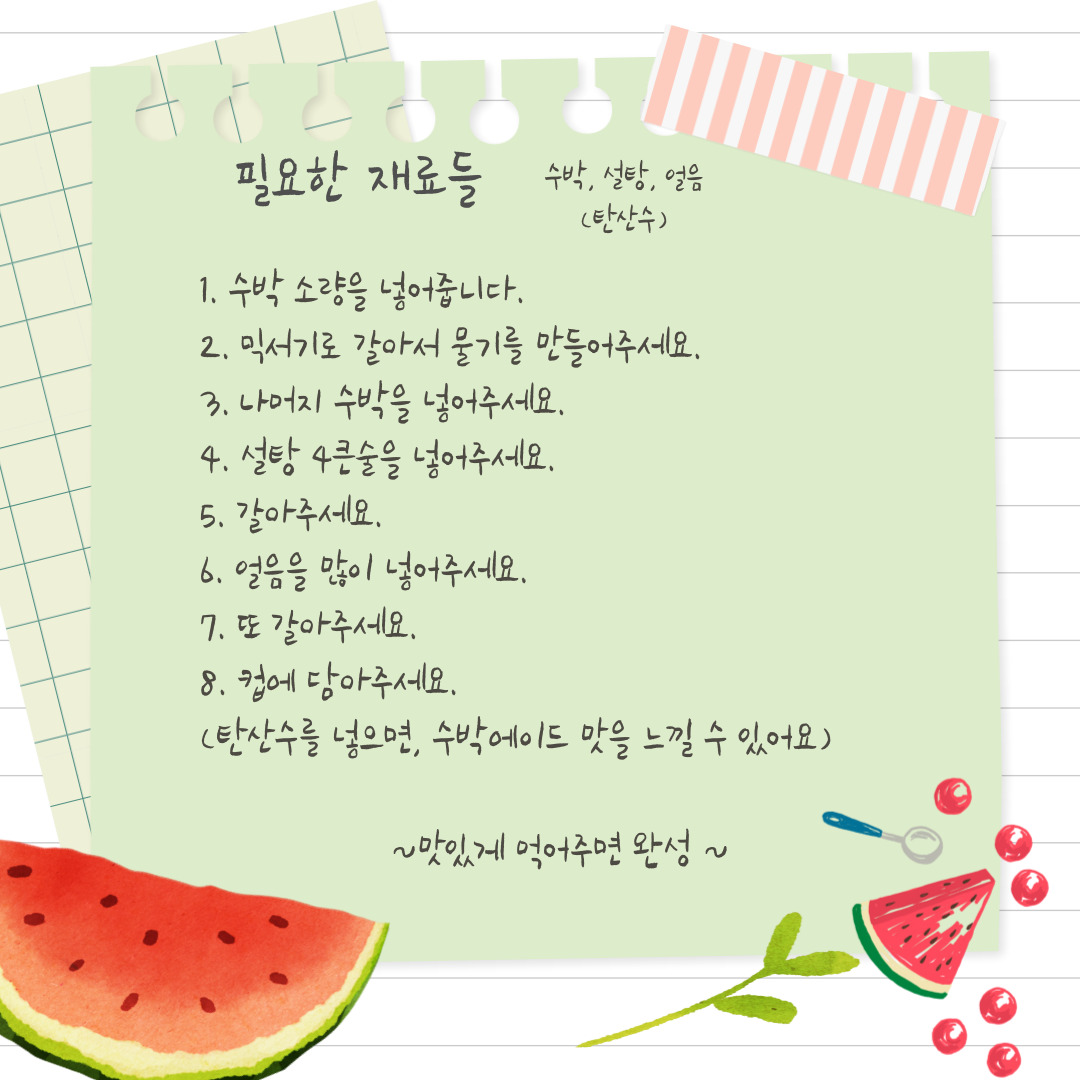 필요한 재료들
수박, 설탕, 얼음
(탄산수)
1. 수박 소량을 넣어줍니다.
2. 믹서기로 갈아서 물기를 만들어주세요.
3. 나머지 수박을 넣어주세요.
4. 설탕 4큰술을 넣어주세요.
5. 갈아주세요.
6. 얼음을 많이 넣어주세요.
7. 또 갈아주세요.
8. 컵에 담아주세요.
(탄산수를 넣으면, 수박에이드 맛을 느낄 수 있어요)
~맛있게 먹어주면 완성 ~